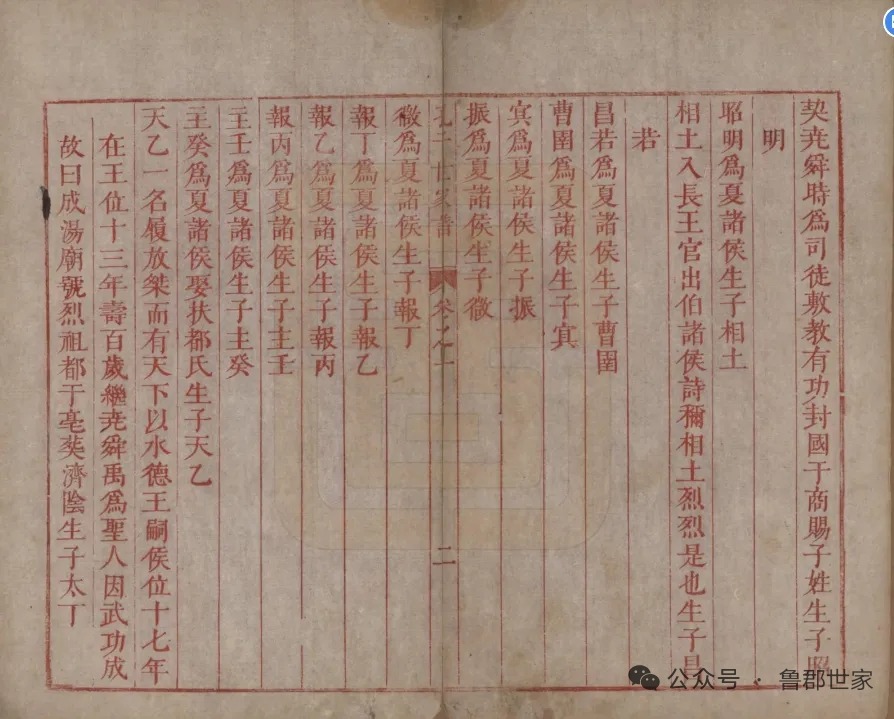 契堯舜時爲司徒敷教有功封國于商賜子姓生子昭
明
昭明爲夏諸侯生子相土
相土入長王官出伯諸侯詩稱相土烈烈是也生子昌
若
昌若爲夏諸侯生子曹圉
曹圉爲夏諸侯生子㝠
㝠爲夏諸侯生子振
振爲夏諸侯生子微
孔子世家譜 卷之一 二
微爲夏諸侯生子報丁
報丁爲夏諸侯生子報乙
報乙爲夏諸侯生子報丙
報丙爲夏諸侯生子主壬
主壬爲夏諸侯生子主癸
主癸爲夏諸侯娶扶都氏生子天乙
天乙一名履放桀而有天下以水德王嗣侯位十七年
在王位十三年壽百歲繼堯舜禹爲聖人因武功成
故曰成湯廟號烈祖都于亳葬濟陰生子太丁
公众号 · 鲁郡世家